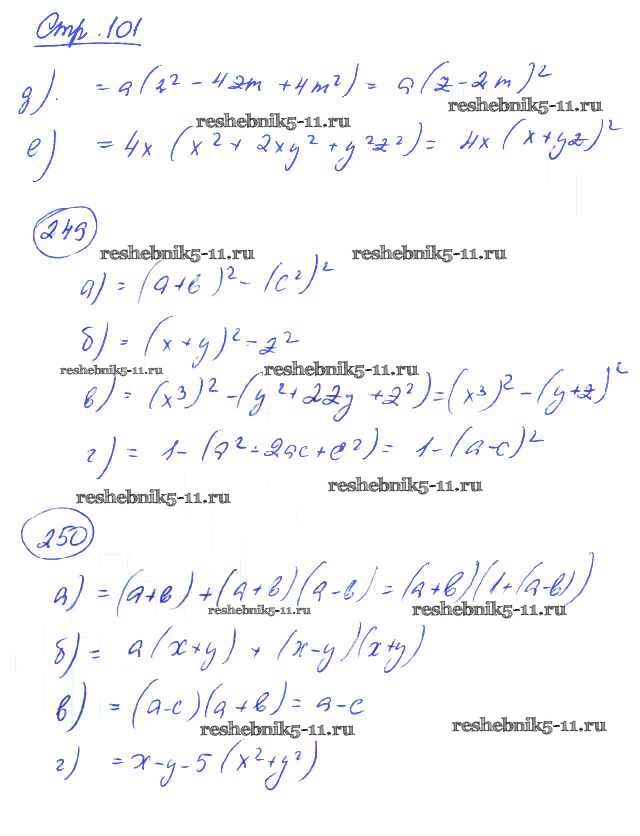 Стр. 101
д). = a(z² - 4zm + 4m²) = a(z - 2m)²
reshebnik5-11.ru
reshebnik5-11.ru
е) = 4x (x² + 2xy² + y²z²) = 4x (x + yz)²
249
reshebnik5-11.ru reshebnik5-11.ru
а) = (a+в)² - (c²)²
б) = (x+y)² - z²
reshebnik5-11.ru reshebnik5-11.ru
в) = (x³)² - (y² + 2zy + z²) = (x³)² - (y+z)²
г) = 1 - (a² - 2ac + c²) = 1 - (a-c)²
reshebnik5-11.ru
reshebnik5-11.ru
250
а) = (a+в) + (a+в)(a-в) = (a+в)(1+(a-в))
reshebnik5-11.ru reshebnik5-11.ru
б) = a(x+y) + (x-y)(x+y)
в) = (a-c)(a+в) = a-c
reshebnik5-11.ru reshebnik5-11.ru
г) = x-y-5(x²+y²)